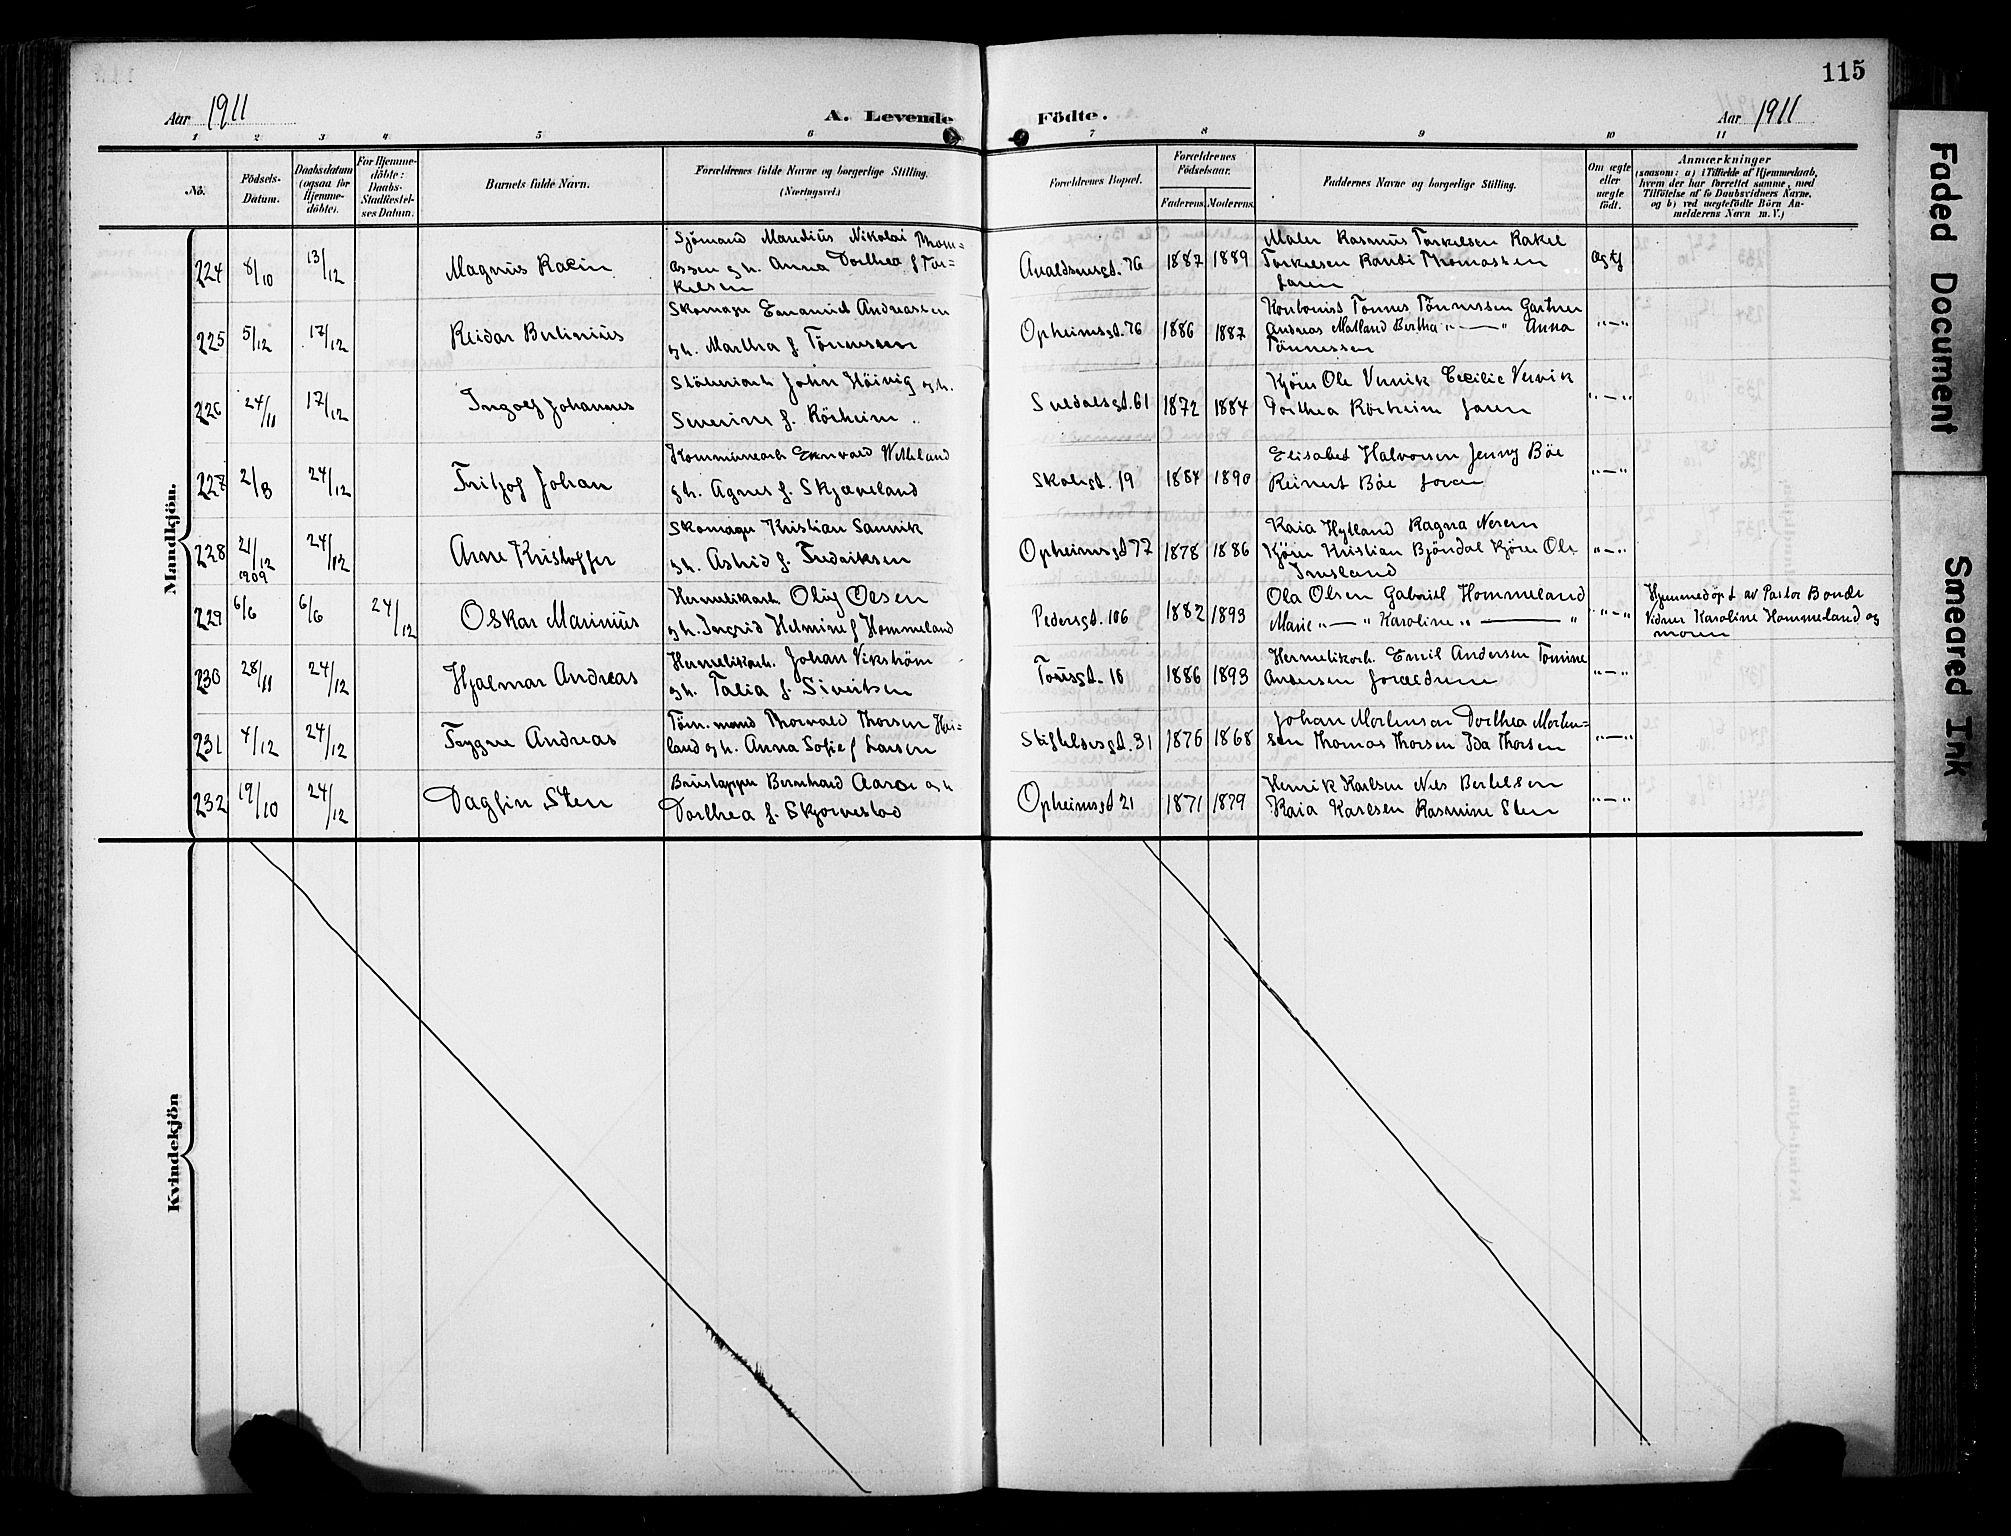 115
Aar 1911
A. Levende
Födte.
Aar 1911
1 2 3 4 5 6 7 8 9 10 11
No.
Födsels-Datum.
Daabsdatum (ogsaa for Hjemme-döbte).
For Hjemme-döbte: Daabs-Stadfæstel-ses Datum.
Barnets fulde Navn.
Forældrenes fulde Navne og borgerlige Stilling. (Næringsvei.)
Forældrenes Bopæl.
Forældrenes Födselsaar.
Faderens. Moderens.
Faddernes Navne og borgerlige Stilling.
Om ægte eller uægte født.
Anmærkninger
(saasom: a) i Tilfælde af Hjemmedaab, hvem der har forrettet samme, med Tilföielse af to Daabsvidners Navne. og b) ved uægtefödte Börn An-melderens Navn m. V.)
Mandkjön.
224 8/10 13/12 Magnus
Sjömand Mandius Nikolai Thom=
assen g. h. Anna Dorthea f Tor=
kelsen
Avaldsnesgt. 76 1887 1889
Maler Rasmus Torkelsen Rakel
Torkelsen Randi Thomassen
Foren
Ægte
225 5/12 17/12 Reidar Berlinius
Skomager Emanuel Andreassen
g. h. Martha f. Tönnessen
Opheimsgt. 76 1886 1887
Tönnes Tönnessen Gartner
Andreas Matland Bertha " — " Anna
Tönnessen
" — "
226 24/11 17/12 Ingolf Johannes
Stöberiarb John Höivig g. h.
Severine f. Rörheim
Suldalsgt. 61 1872 1884
Kjörer Ole Vervik Cecilie Vervik
Dorthea Rörheim Foren
" — "
227 2/8 24/12 Fritjof Johan
Kommunearb Wethland
g. h. Agnes f. Skjæveland
Skolegt. 19 1884 1890
Elisabet Halvorsen Jenny Böe
Reinert Böe Foren
" — "
228 21/12 24/12 Arne Kristoffer
Skomager Kristian Sannik
g. h. Astrid f. Fredriksen
Opheimsgt 72 1878 1886
Kaia Hylland Ragna
Kjörer Kristian Bjöndal Kjörer Ole
" — "
1909
229 6/6 6/6 24/12 Oskar Marinius
Hermetikarb. Oluf Olsen
g. h. Ingrid Helmine f Hommeland
Pedersgt. 106 1882 1893
Ola Olsen Gabriel Hommeland
Marie " — " Karoline " — "
" — "
Hjemmedöpt av Pastor Bonde
Vidner Karoline Hommeland og
moren
230 28/11 24/12 Hjalmar Andreas
Hermetikarb. Johan Vikström
g. h. Talia f. Sivertsen
Tousgt. 16 1886 1893
Hermetikarb. Emil Andersen Tomine
Andersen Forældrene
" — "
231 4/12 24/12 Trygve Andreas
Töm. mand Thorvald Thorsen Hei=
land g. h. Anna Sofie f Larsen
Stiftelsesgt. 31 1876 1868
Johan Mortensen Dorthea Morten=
sen Thomas Thorsen Ida Thorsen
" — "
232 19/10 24/12 Dagfin Sten
Bernhard Aarre g h
Dorthea f. Skjörestad
Opheimsgt 21 1871 1879
Henrik Karlsen Nils Bertelsen
Kaia Karlsen Rasmine Sten
" — "
Kvindekjön
Faded Document
Smeared Ink